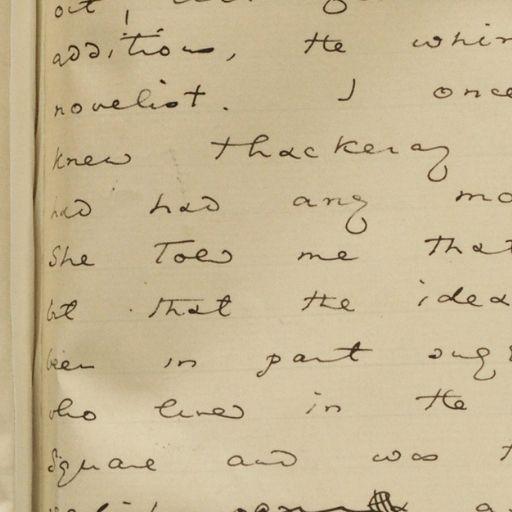 out,
addition, the whim
novelist. I once
knew Thackeray
had had any mo
She told me that
but that the idea
been in part sugg
who lived in the
Square and was t